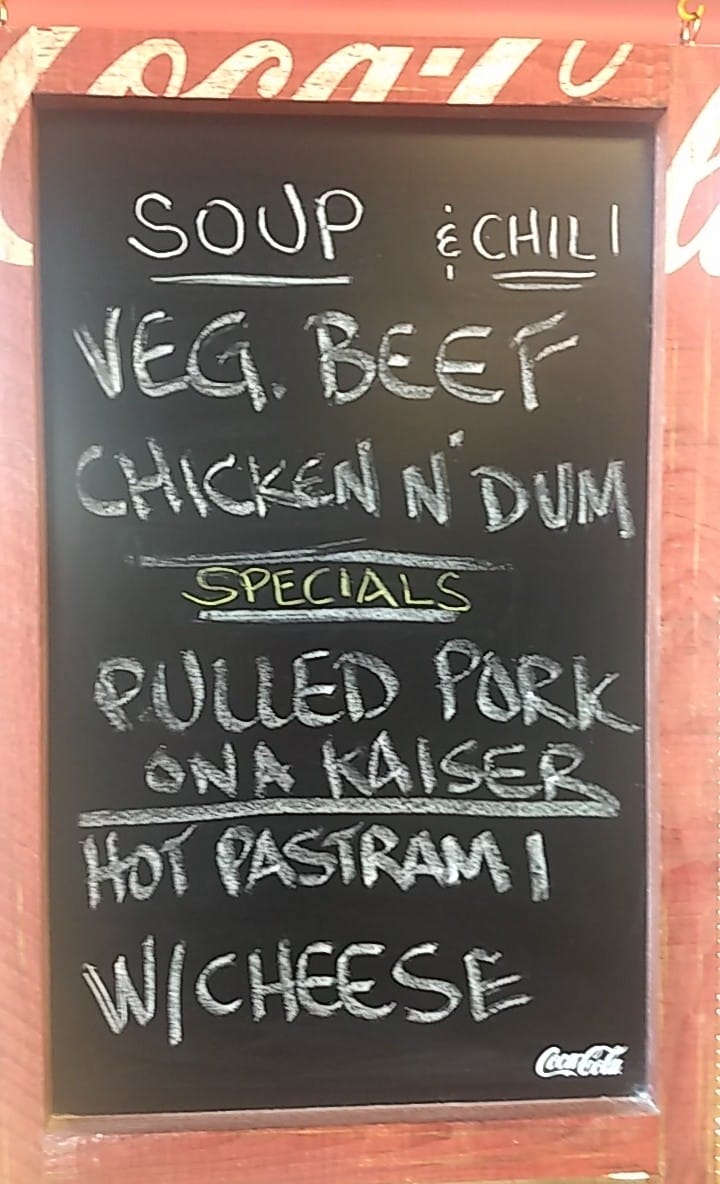 Coca-Cola
SOUP & CHILI
VEG. BEEF
CHICKEN N' DUM
SPECIALS
PULLED PORK
ON A KAISER
HOT PASTRAMI
W/CHEESE
Coca-Cola